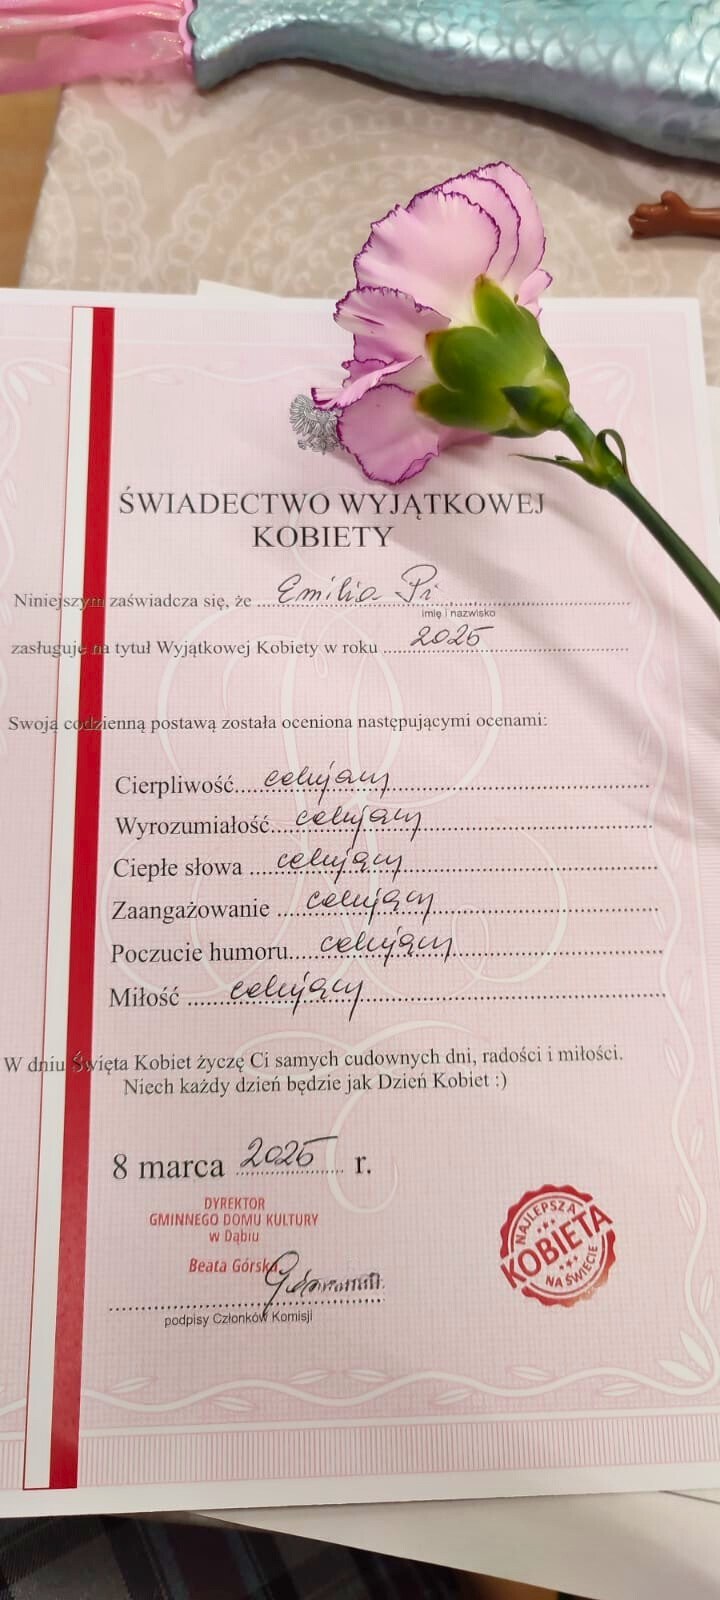 ŚWIADECTWO WYJĄTKOWEJ
KOBIETY
Niniejszym zaświadcza się, że Emilia Pi
imię i nazwisko
zasługuje na tytuł Wyjątkowej Kobiety w roku 2025
Swoją codzienną postawą została oceniona następującymi ocenami:
Cierpliwość celujący
Wyrozumiałość celujący
Ciepłe słowa celujący
Zaangażowanie celujący
Poczucie humoru celujący
Miłość celujący
W dniu Święta Kobiet życzę Ci samych cudownych dni, radości i miłości.
Niech każdy dzień będzie jak Dzień Kobiet :)
8 marca 2025 r.
DYREKTOR
GMINNEGO DOMU KULTURY
w Dąbiu
Beata Górska
podpisy Członków Komisji
NAJLEPSZA
KOBIETA
NA ŚWIECIE